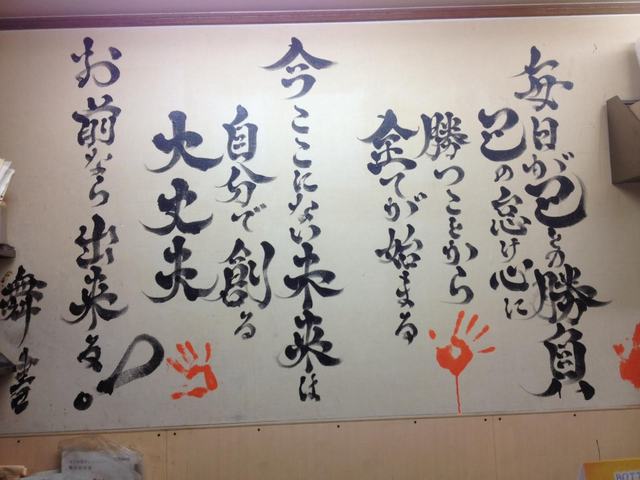 毎日が己との勝負
己の怠け心に
勝つことから
全てが始まる
今ここにない未来は
自分で創る
大丈夫
お前なら出来る。